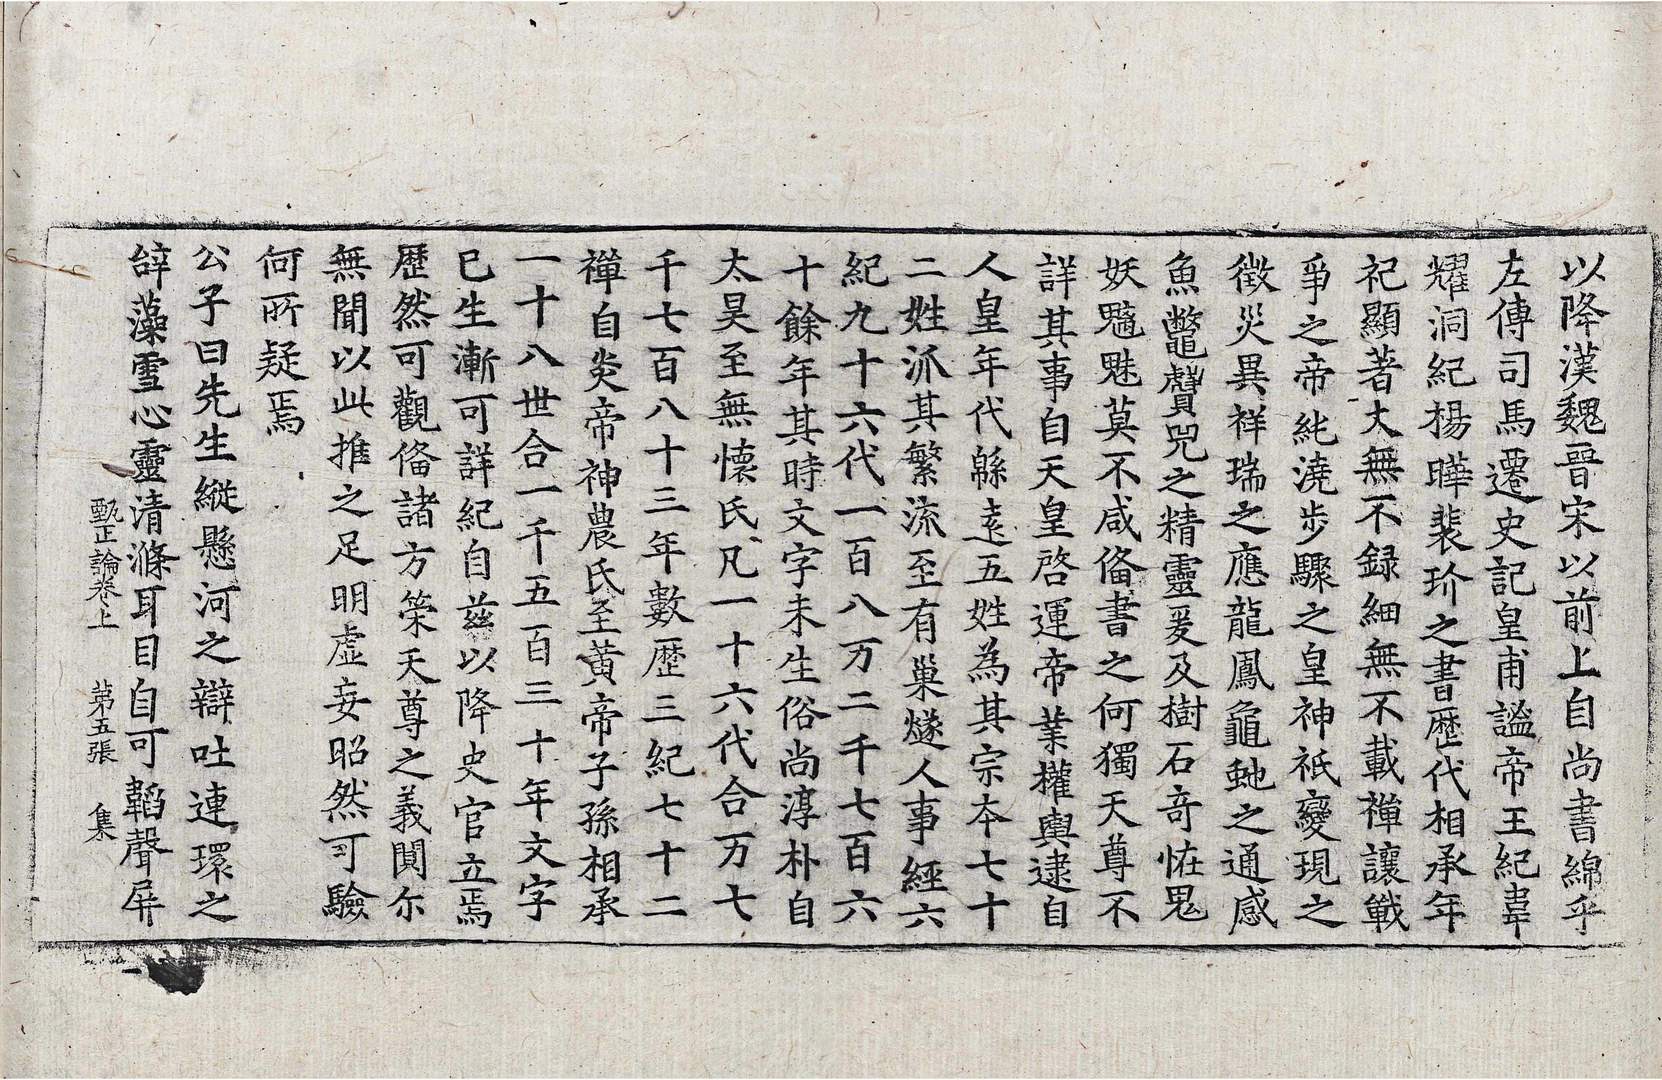 以降漢魏晉宋以前上自尚書綿乎
左傳司馬遷史記皇甫謐帝王紀韋
耀洞紀楊曄裴玠之書歷代相承年
祀顯著大無不録細無不載禪讓戰
爭之帝純澆步驟之皇神祇變現之
徵災異祥瑞之應龍鳳龜虵之通感
魚鼈鼉兕之精靈爰及樹石奇恠鬼
妖魑魅莫不咸俻書之何獨天尊不
詳其事自天皇啓運帝業權輿逮自
人皇年代緜逺五姓為其宗夲七十
二姓派其繁流至有巢燧人事經六
紀九十六代一百八万二千七百六
十餘年其時文字未生俗尚淳朴自
太昊至無懷氏凡一十六代合万七
千七百八十三年數歷三紀七十二
禪自炎帝神農氏至黄帝子孫相承
一十八世合一千五百三十年文字
已生漸可詳紀自茲以降史官立焉
歷然可觀俻諸方策天尊之義闃尓
無聞以此推之足明虛妄昭然可驗
何所疑焉
公子曰先生縱懸河之辯吐連環之
辝藻雪心靈清滌耳目自可韜聲屏
甄正論卷上 第五張 集